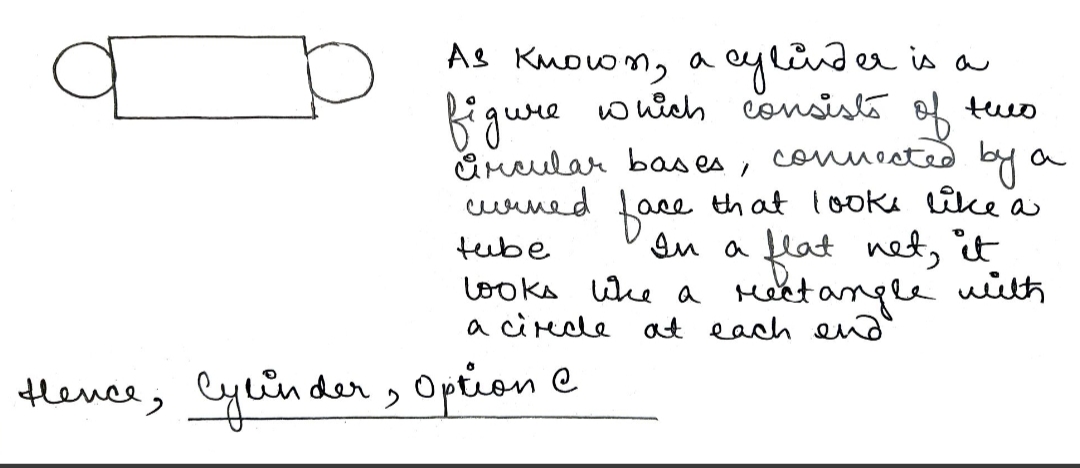 As known, a cylinder is a
figure which consists of two
circular bases, connected by a
curved face that looks like a
tube In a flat net, it
looks like a rectangle with
a circle at each end
Hence, Cylinder, Option C